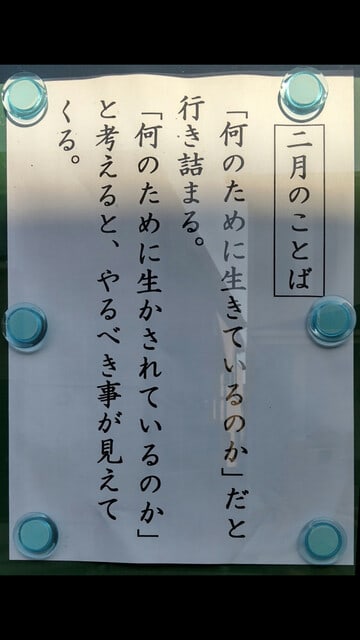 二月のことば
「何のために生きているのか」だと
行き詰まる。
「何のために生かされているのか」
と考えると、やるべき事が見えて
くる。